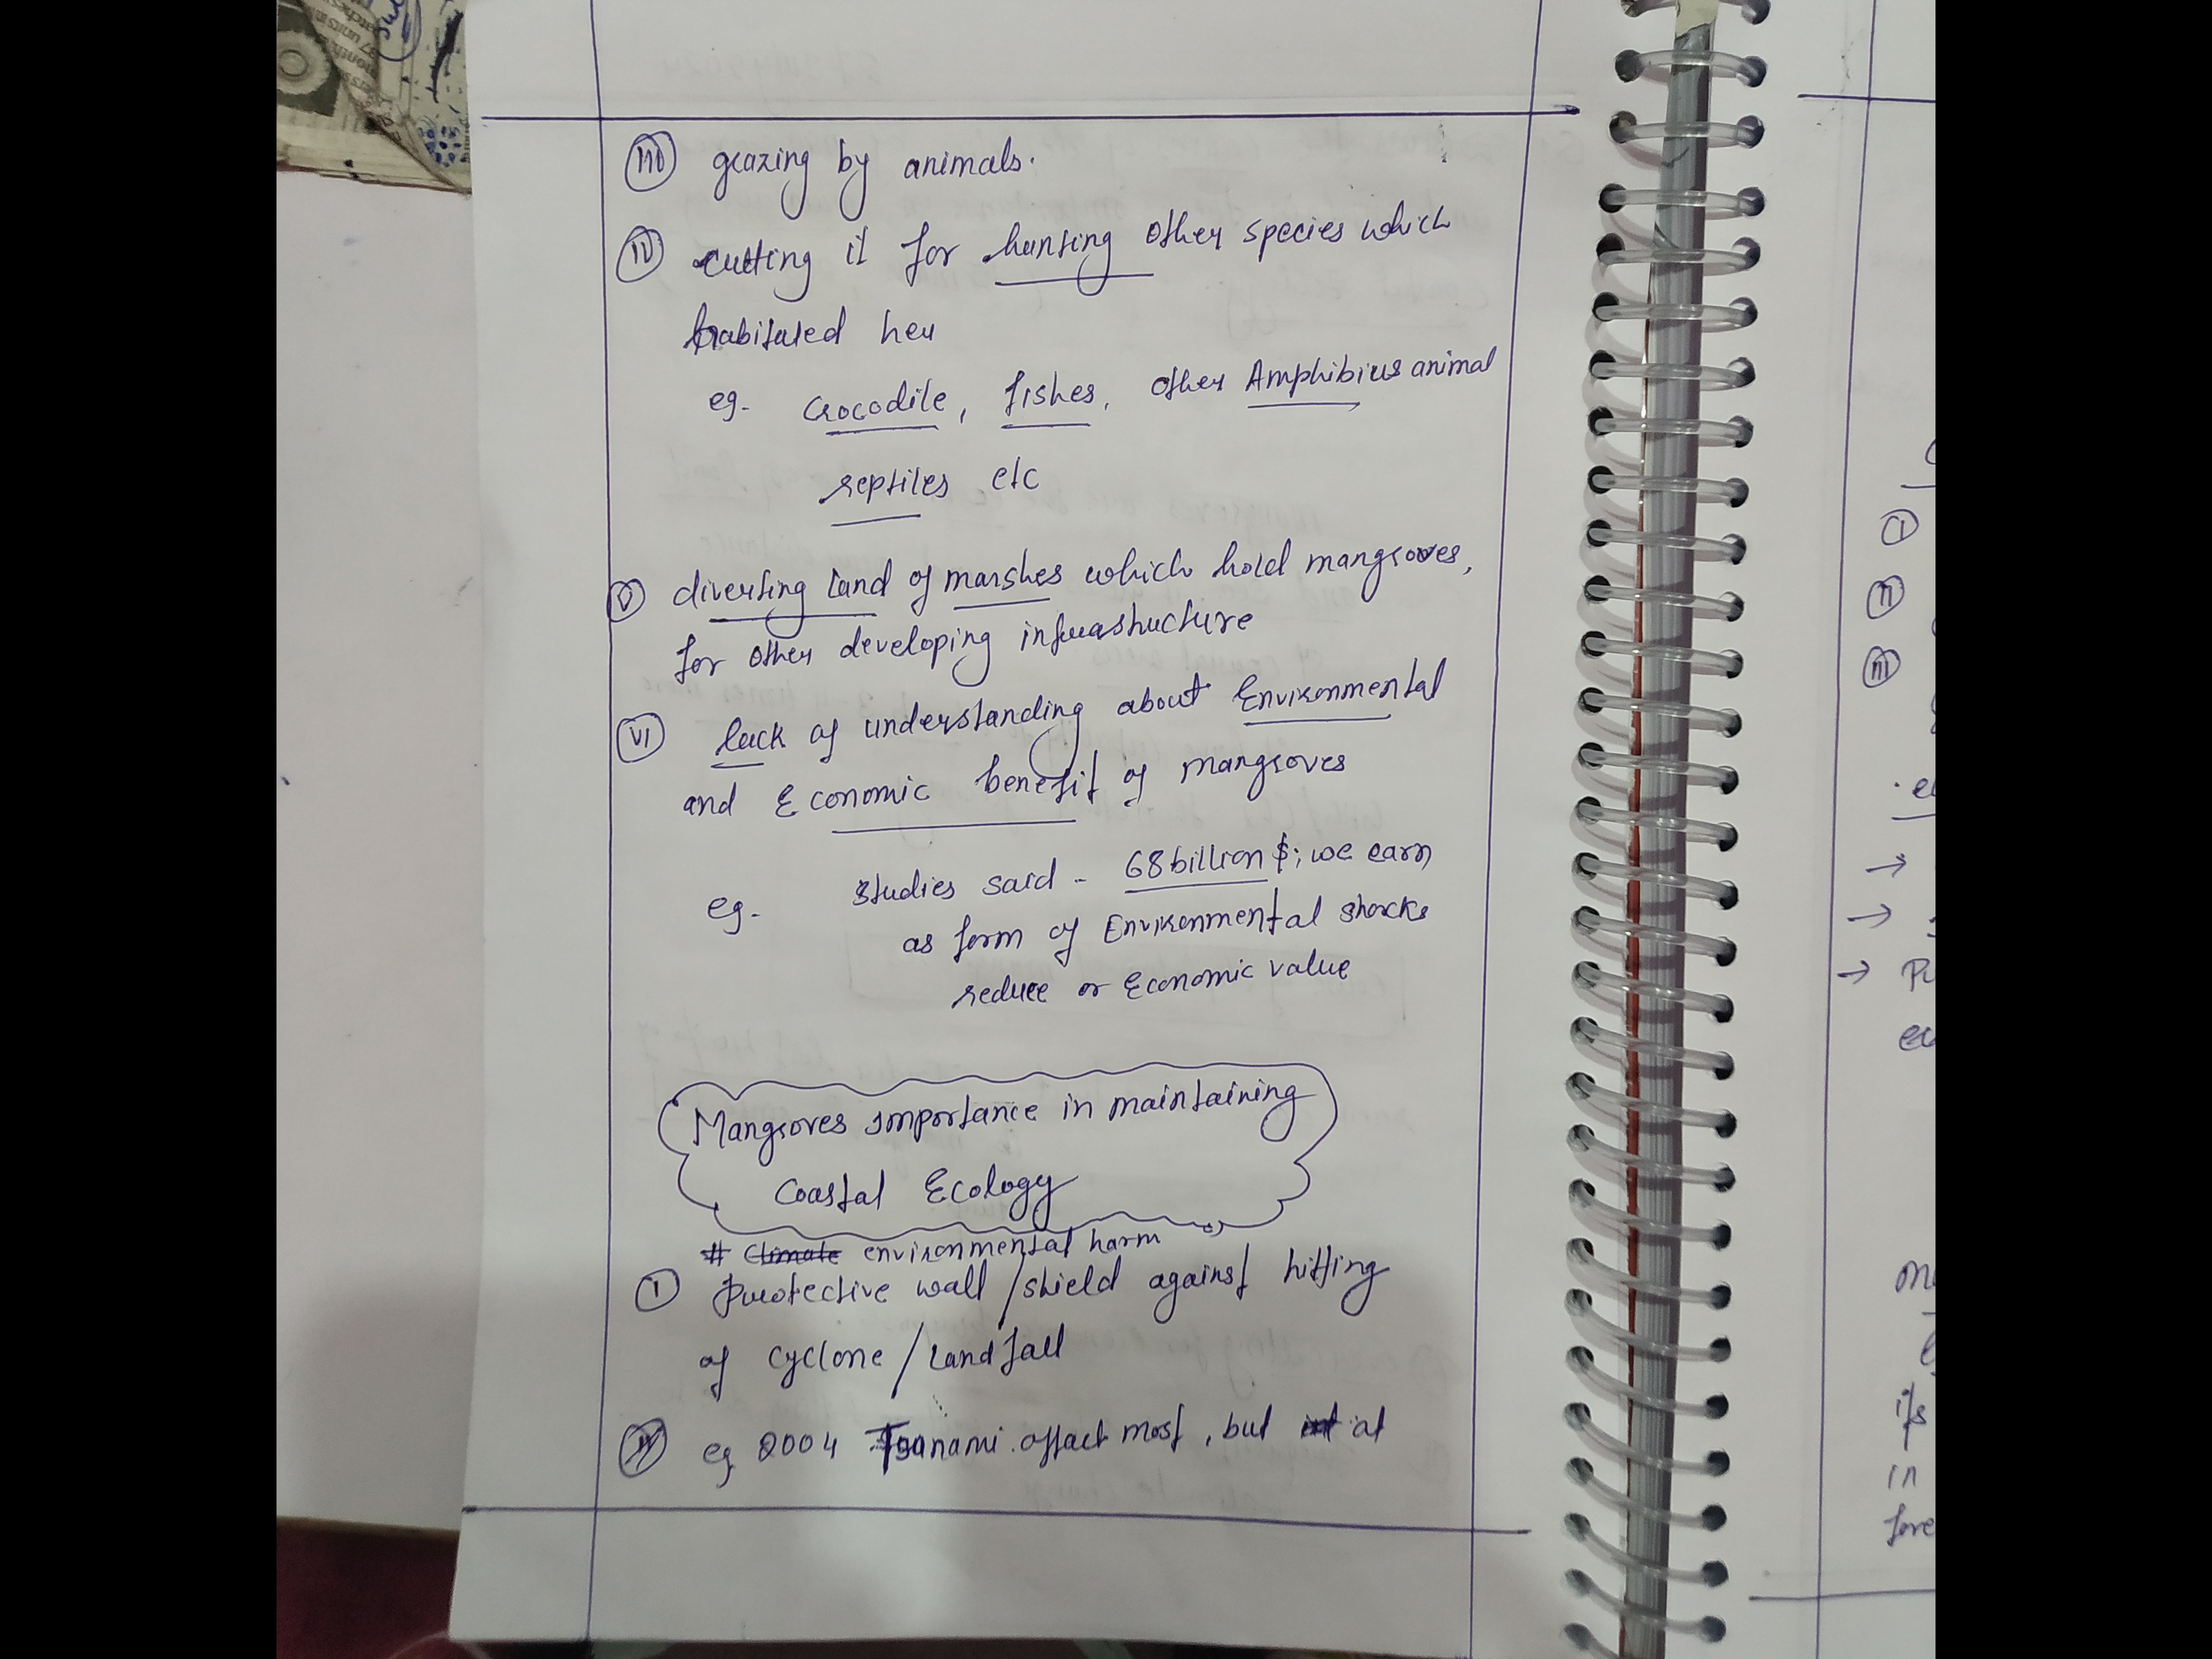 (iii) grazing by animals.
(iv) cutting it for hunting other species which
habitated her
eg- Crocodile, fishes, other Amphibius animal
reptiles etc
(v) diverting land of marshes which hold mangroves,
for other developing infrastructure
(vi) lack of understanding about Environmental
and Economic benefit of mangroves
eg- Studies said - 68 billion $; we earn
as form of Environmental shocks
reduce or Economic value
Mangroves importance in maintaining
Coastal Ecology
# Climate environmental harm
(i) protective wall/shield against hitting
of cyclone / Landfall
eg 2004 Tsunami affact most, but at
(i)
(ii)
(iii)
→
→
→
in